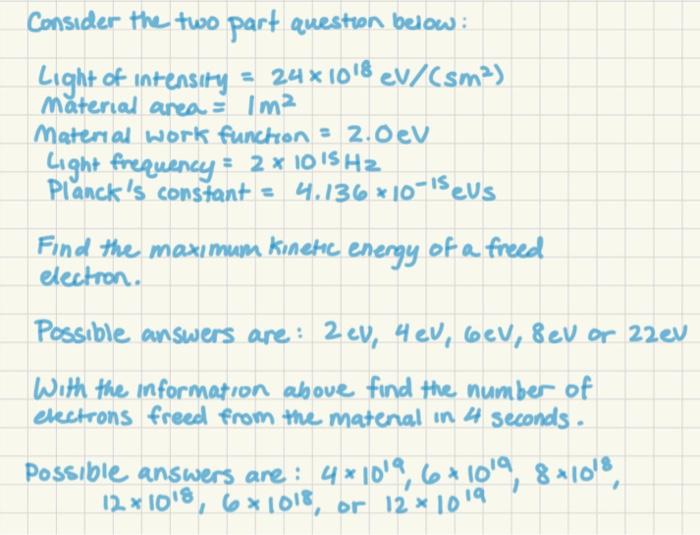 Consider the two part question below:
Light of intensity = 24 × 10¹⁸ eV/(sm²)
Material area = 1m²
Material work function = 2.0eV
Light frequency = 2 × 10¹⁵Hz
Planck's constant = 4.136 × 10⁻¹⁵eVs
Find the maximum kinetic energy of a freed
electron.
Possible answers are: 2eV, 4eV, 6eV, 8eV or 22eV
With the information above find the number of
electrons freed from the material in 4 seconds.
Possible answers are: 4 × 10¹⁹, 6 × 10¹⁹, 8 × 10¹⁸,
12 × 10¹⁸, 6 × 10¹⁸, or 12 × 10¹⁹